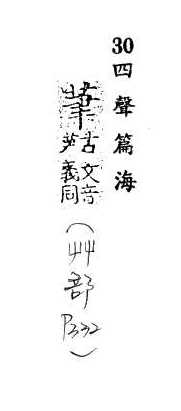 30四聲篇海
茟古文音
芛義同
(艸部P332)